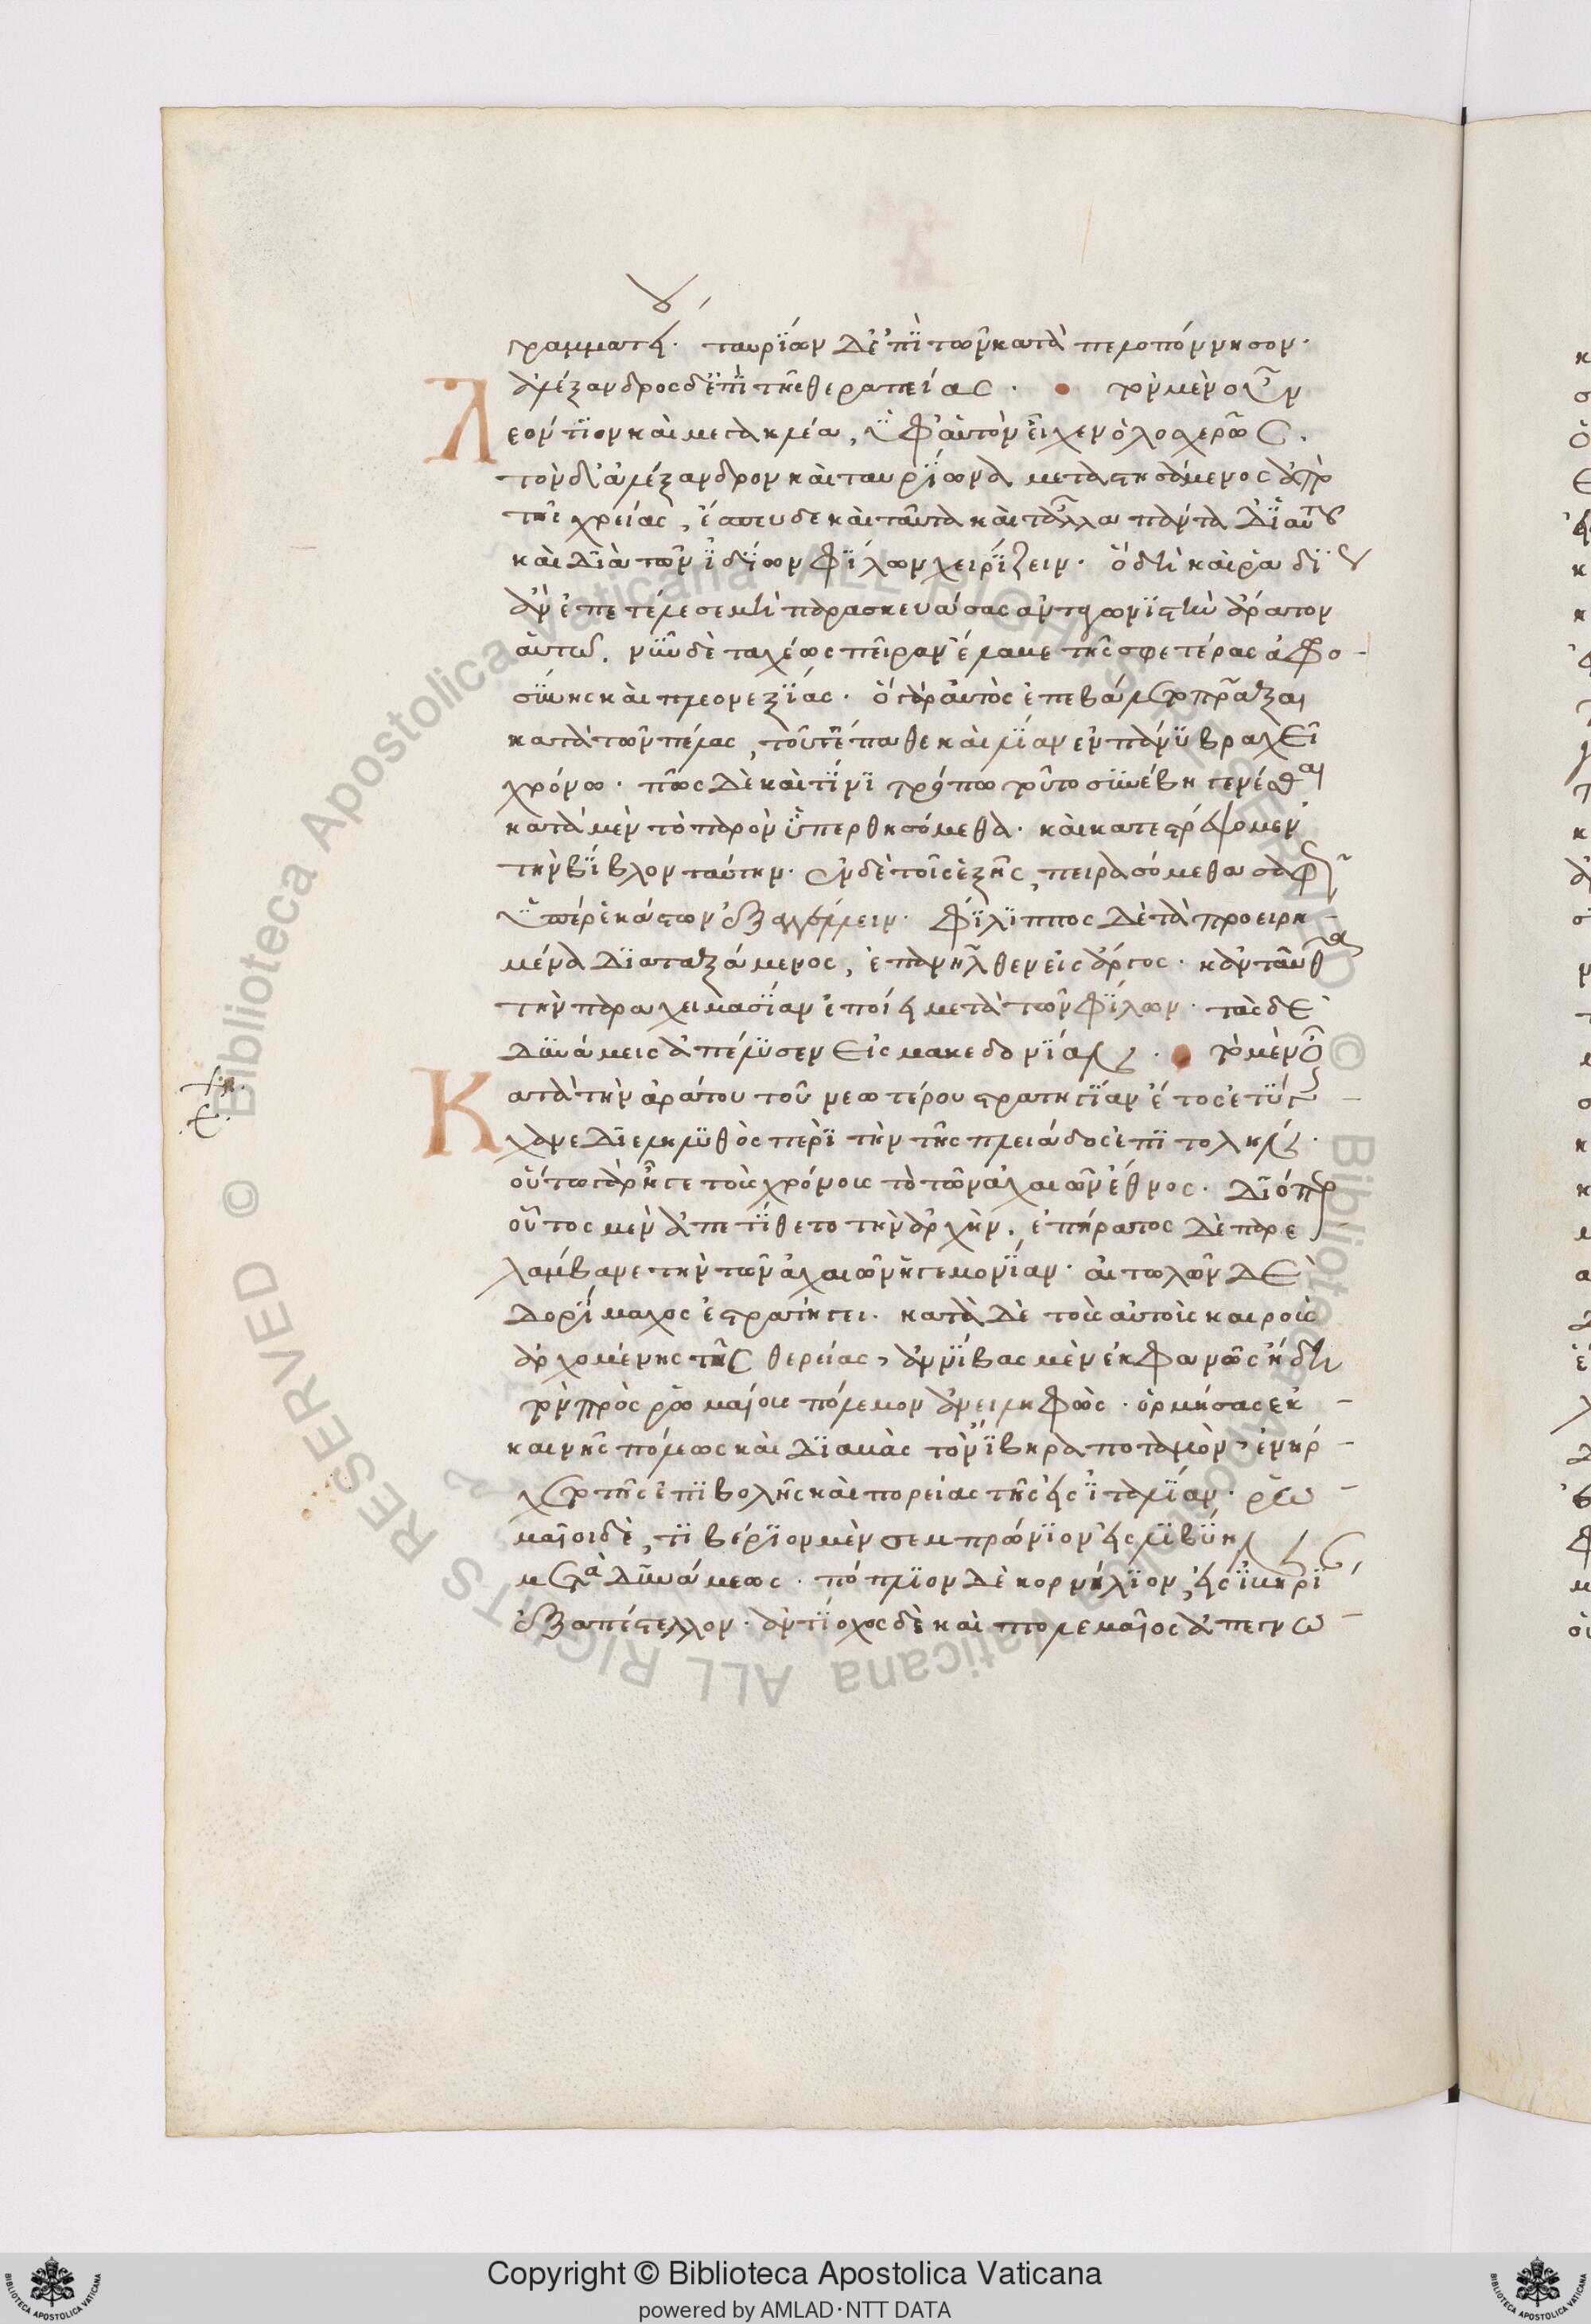 γραμματεῖ. ταυρίων δὲ ἐπὶ τῶν κατὰ πελοπόννησον.
ἀλέξανδρος δὲ ἐπὶ τῆς θεραπείας. τὸν μὲν οὖν
Λεόντιον καὶ μεγαλέαν, ὑφ' αὑτὸν εἶχεν ὁλοσχερῶς.
τὸν δ' ἀλέξανδρον καὶ ταυρίωνα μεταστησάμενος ἀπὸ
τῆς χρείας, ἔσπευδε καὶ ταῦτα καὶ τἄλλα πάντα δι' αὑτοῦ
καὶ διὰ τῶν ἰδίων φίλων χειρίζειν. ὃ δὴ καὶ ῥαδίως
ἂν ἐπετέλεσε μὴ παρασκευάσας ἀνταγωνιστὴν ἄρατον
αὑτῷ. νῦν δὲ ταχέως πεῖραν ἔλαβε τῆς σφετέρας ἀφρο-
σύνης καὶ πλεονεξίας. ὃ γὰρ αὐτὸς ἐπεβάλετο πρᾶξαι
κατὰ τῶν πέλας, τοῦτ' ἔπαθε καὶ λίαν ἐν πάνυ βραχεῖ
χρόνω. πῶς δὲ καὶ τίνι τρόπω τοῦτο συνέβη γενέσθαι
κατὰ μὲν τὸ παρὸν ὑπερθησόμεθα. καὶ καταστρέψομεν
τὴν βίβλον ταύτην. ἐν δὲ τοῖς ἑξῆς, πειρασόμεθα σαφῶς
ὑπὲρ ἑκάστων ἐξαγγέλλειν. φίλιππος δὲ τὰ προειρη-
μένα διαταξάμενος, ἐπανῆλθεν εἰς ἄργος. κἀνταῦθα
τὴν παραχειμασίαν ἐποίει μετὰ τῶν φίλων. τὰς δὲ
δυνάμεις ἀπέλυσεν εἰς μακεδονίαν. τὸ μὲν οὖν
Κατὰ τὴν ἀράτου τοῦ νεωτέρου στρατηγίαν ἔτος ἐτύγ-
χανε διεληλυθὸς περὶ τὴν τῆς πλειάδος ἐπιτολήν.
οὕτω γὰρ ἦγε τοὺς χρόνους τὸ τῶν ἀχαιῶν ἔθνος. διόπερ
οὗτος μὲν ἀπετίθετο τὴν ἀρχήν. ἐπήρατος δὲ παρε
λάμβανε τὴν τῶν ἀχαιῶν ἡγεμονίαν. αἰτωλῶν δὲ
δορίμαχος ἐστρατήγει. κατὰ δὲ τοὺς αὐτοὺς καιροὺς
ἀρχομένης τῆς θερείας, ἀννίβας μὲν ἐκφανῶς ἤδη
τὸν πρὸς ῥωμαίους πόλεμον ἀνειληφὼς. ὁρμήσας ἐκ
καινῆς πόλεως καὶ διαβὰς τὸν ἴβηρα ποταμὸν, ἐνήρ-
χετο τῆς ἐπιβολῆς καὶ πορείας τῆς εἰς ἰταλίαν. ῥω-
μαῖοι δὲ, τιβέριον μὲν σεμπρώνιον εἰς λιβύην
μετὰ δυνάμεως. πόπλιον δὲ κορνήλιον, εἰς ἰβηρίαν
ἐξαπέστελλον. ἀντίοχος δὲ καὶ πτολεμαῖος ἀπεγνω-
Copyright © Biblioteca Apostolica Vaticana
powered by AMLAD·NTT DATA